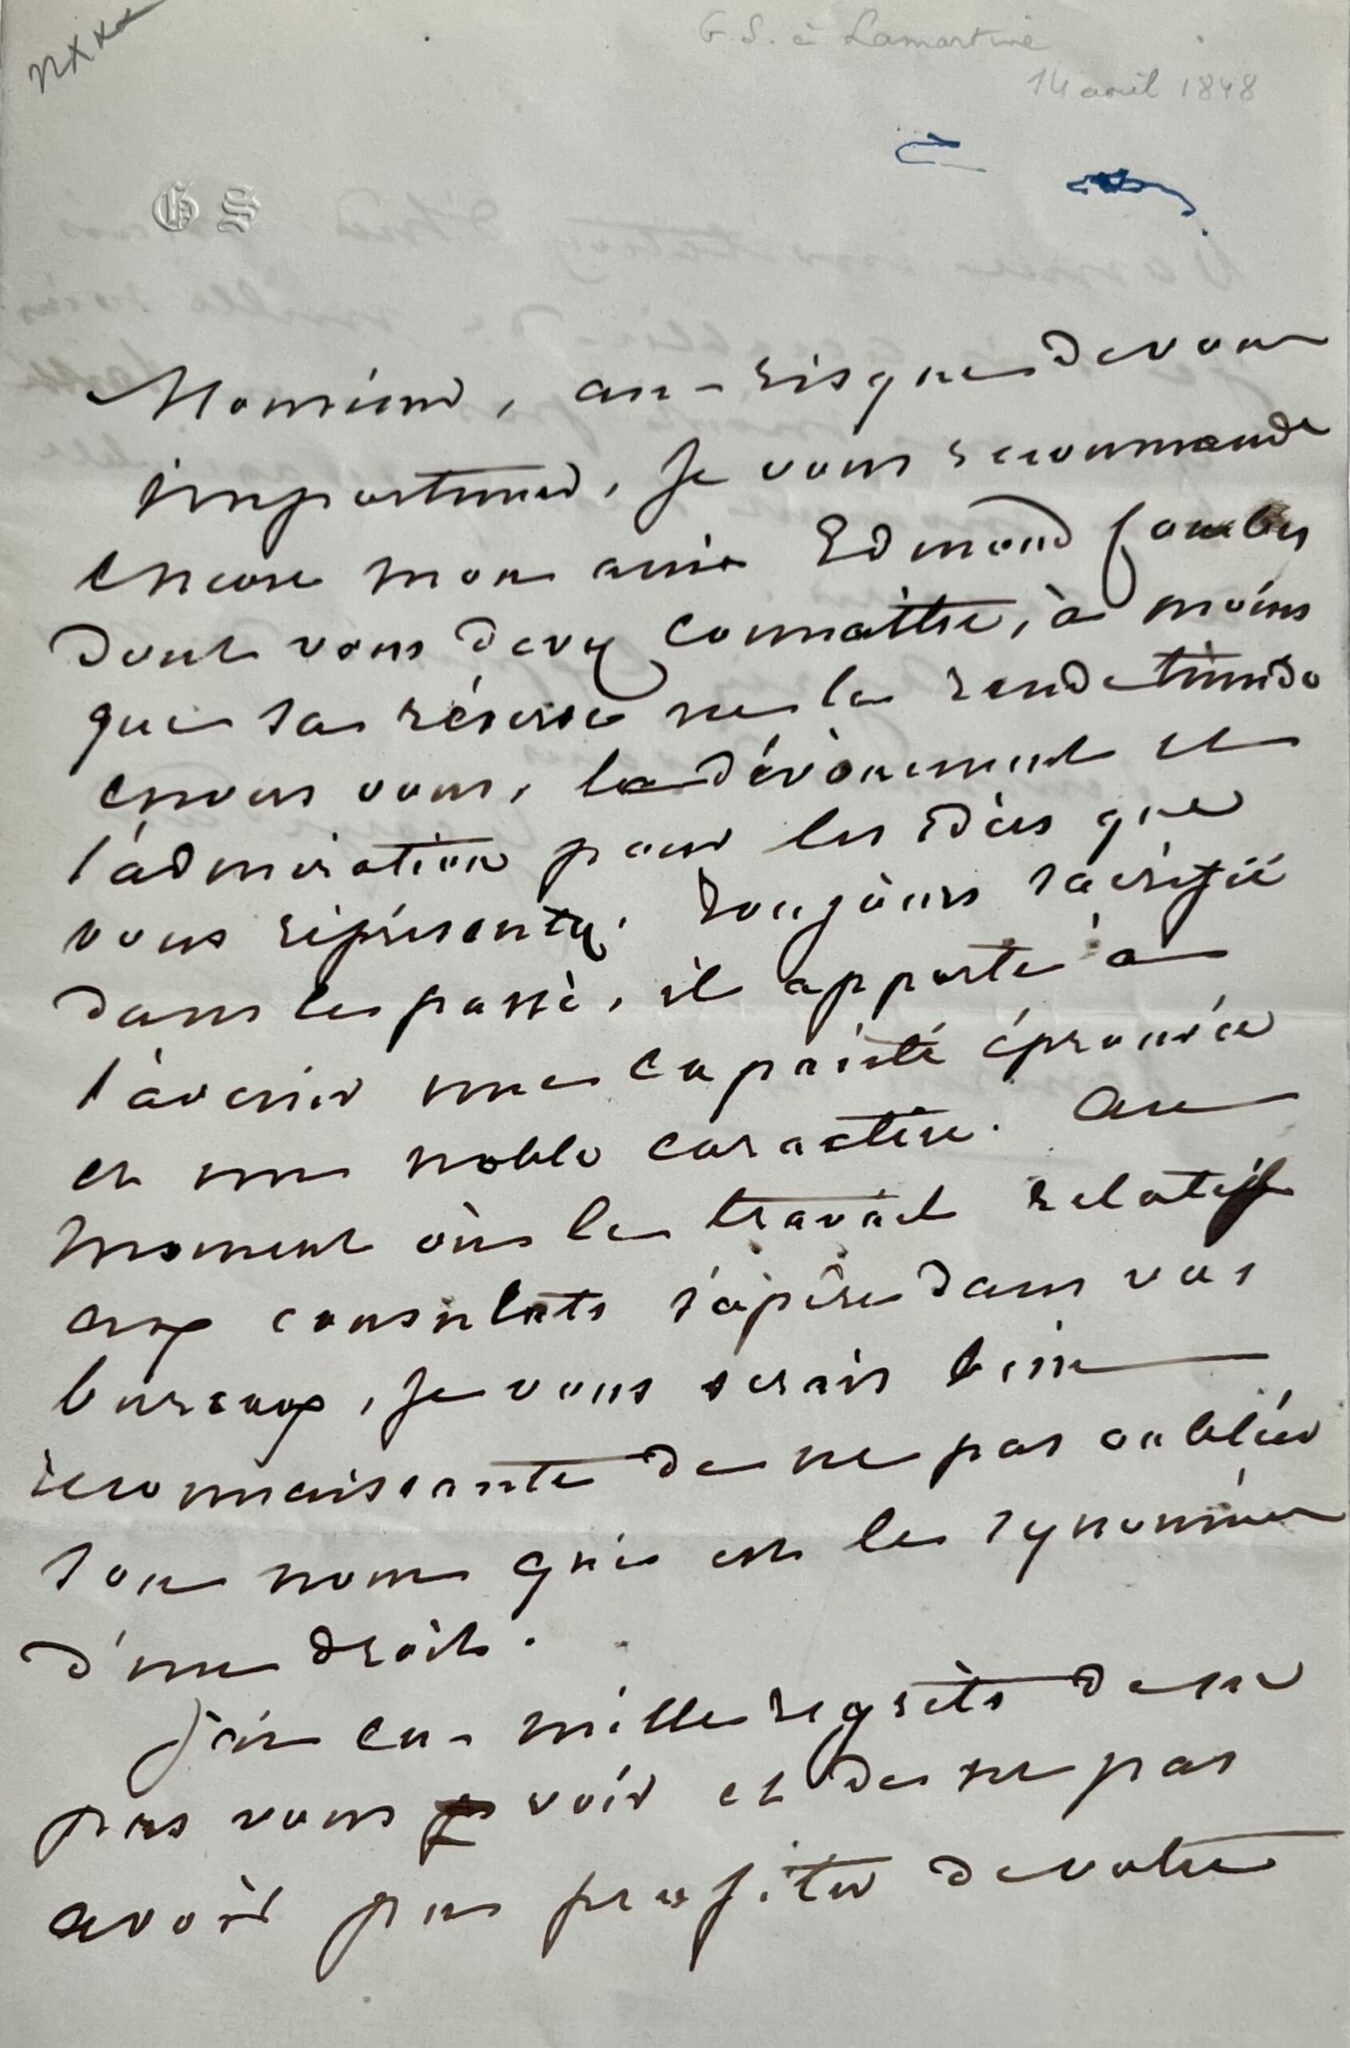 G. S. à Lamartine
14 avril 1848
G S
Monsieur, au risque de vous
importuner, je vous recommande
encore mon ami Edmond
dont vous devez connaitre, à moins
que sa réserve ne la rende timide
envers vous, le dévouement et
l'admiration pour les idées que
vous représentez. Toujours sacrifié
dans le passé, il apporte à
l'avenir une capacité éprouvée
et un noble caractère. Au
moment où le travail relatif
aux consulats s'opère dans vos
bureaux, je vous serais bien
reconnaissante de ne pas oublier
son nom qui est le synonime
d'un droit.
J'ai eu mille regrets de ne
pas vous voir et de ne pas
avoir pu profiter de votre